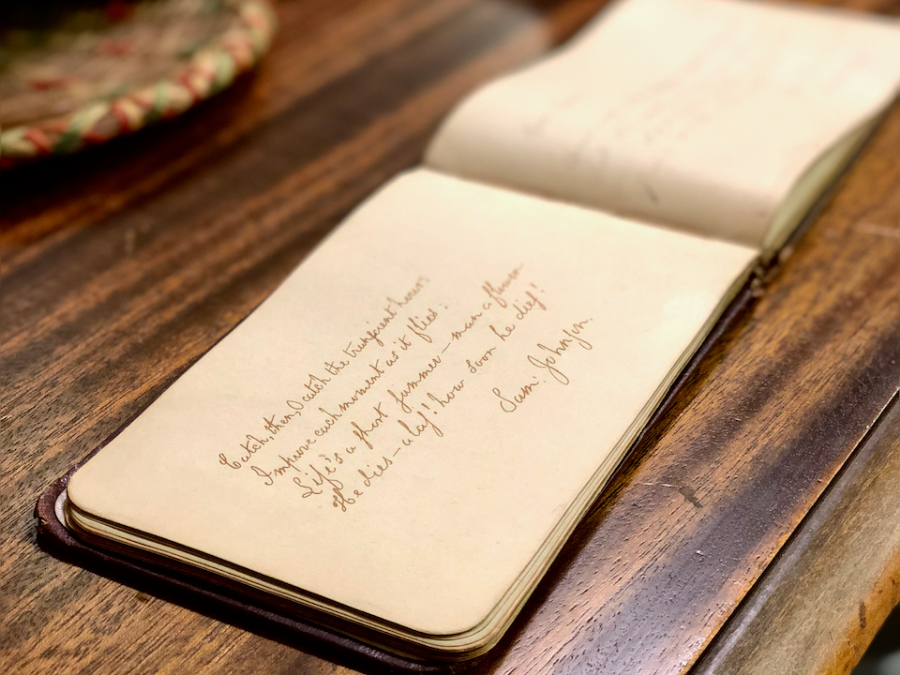 Catch, then, O catch the tranſient hour:
Improve each moment as it flieſ:
Life's a ſhort ſummer – man a flower
He dies – alaſ! how soon he dieſ!
Sam: Johnſon.